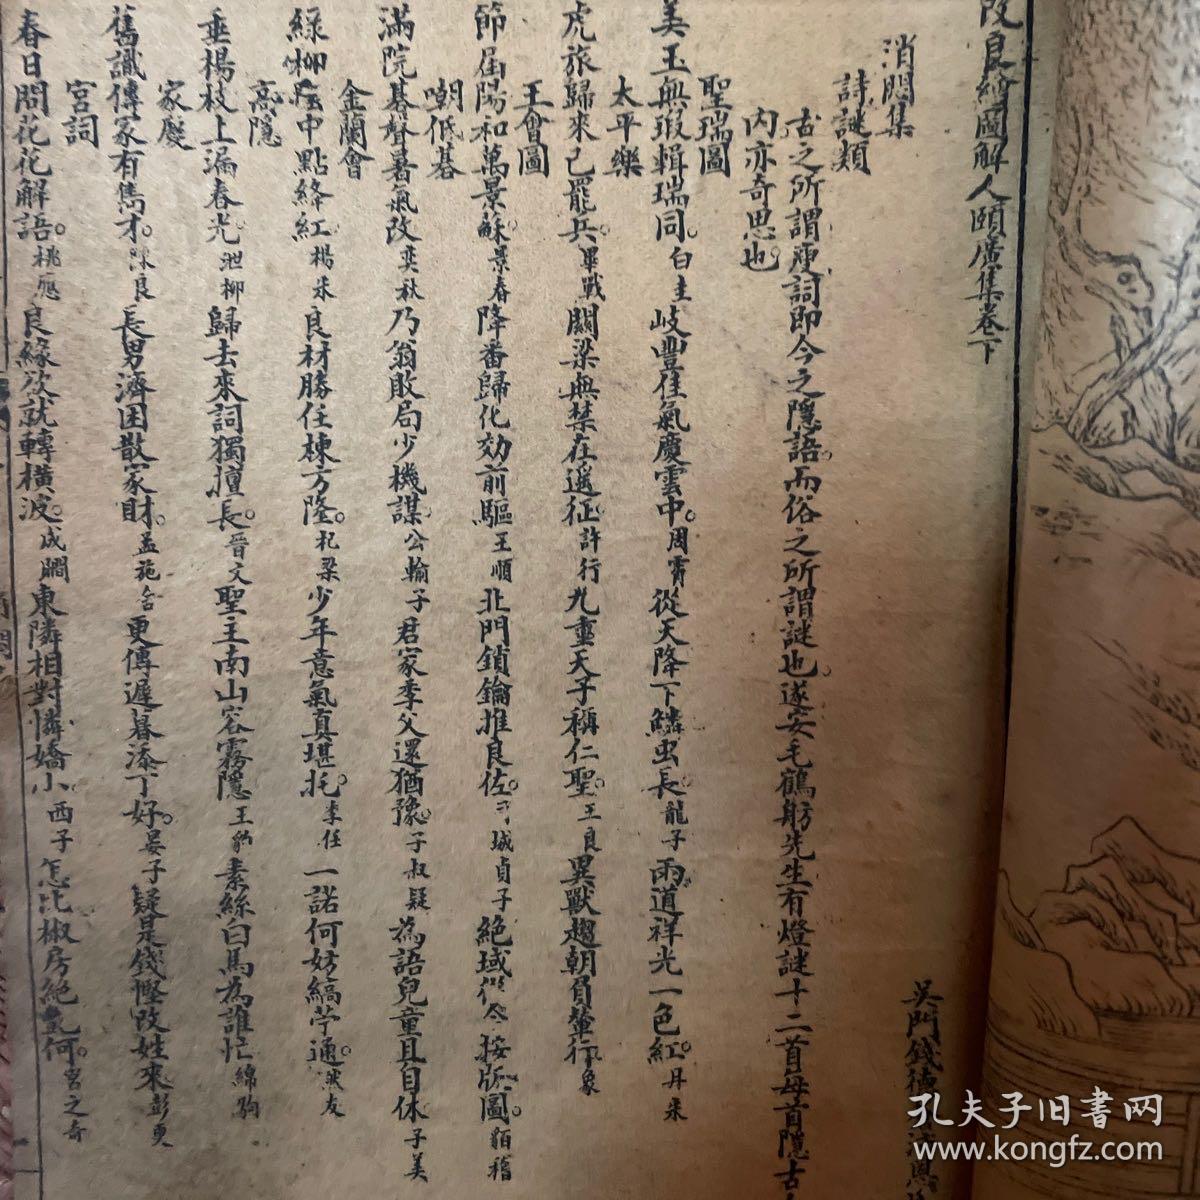 改良繪圖解人頤廣集卷下
吳門錢德
消閒集
詩謎類
古之所謂廋詞即今之隱語而俗之所謂謎也。遂安毛鶴舫先生有燈謎十二首每首隱古
內亦奇思也
聖瑞圖
美玉無瑕輯瑞同。白圭岐豐佳氣慶雲中。周霄從天降下鱗虫長。龍子雨道祥光一色紅。丹朱
太平樂
虎旅歸來已罷兵。畢戰關梁無禁在遏征許行九重天子稱仁聖。王良異獸趨朝負蓥行象
王會圖
節屆陽和萬景蘇。景春降番歸化効前驅王順北門鎖鑰推良佐。城貞子絕域從今接版圖。貊稽
嘲低碁
滿院碁聲暑氣改奕秋乃翁敗局少機謀公輸子君家季父還猶豫。子叔疑為語兒童且自休子美
金蘭會
綠柳陰中點絳紅楊朱良材勝任棟方隆。杞梁少年意氣真堪托。季任一諾何妨縞苧通。然友
高隱
垂楊枝上漏春光泄柳歸去來詞獨擅長晉文聖主南山容霧隱王豹素絲白馬為誰忙綿駒
家慶
舊識傳家有雋才。陳良長男濟困散家財。孟施舍更傳遲暮添丁好。晏子疑是錢慳改姓來彭更
宮詞
春日問花花解語。桃應良緣欲就轉橫波。成覸東隣相對憐嬌小西子怎比椒房絕幸何。宮之奇
孔夫子旧书网
www.kongfz.com